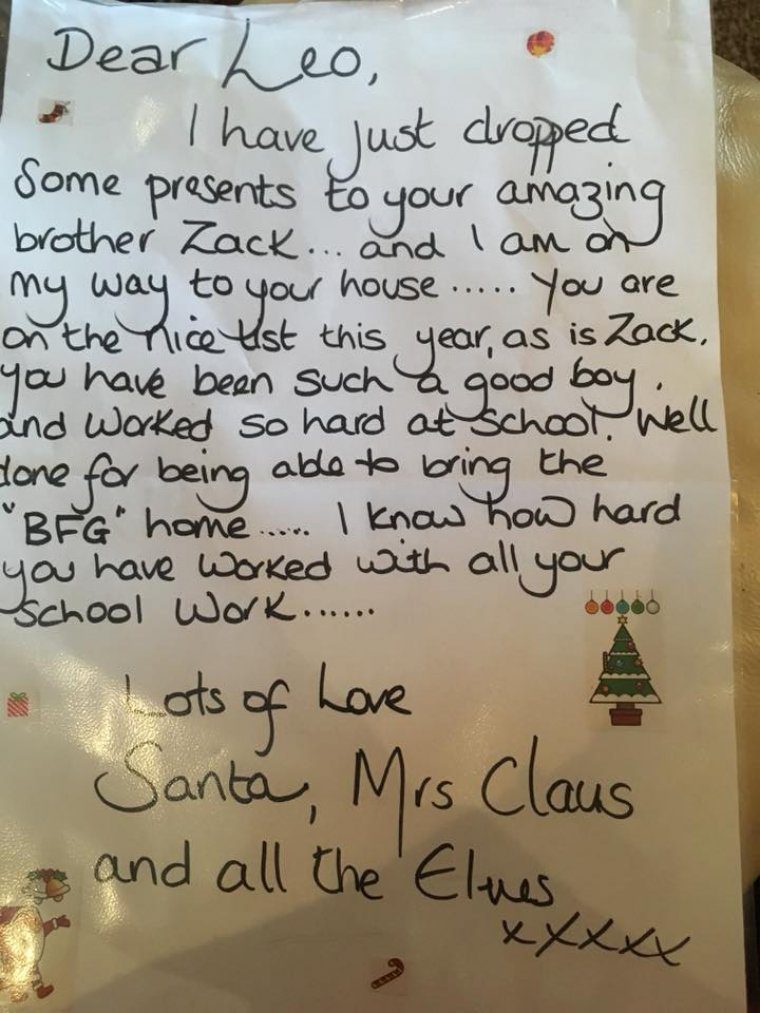 Dear Leo,
I have just dropped
Some presents to your amazing
brother Zack... and I am on
my way to your house ..... You are
on the nice list this year, as is Zack.
you have been such a good boy.
and worked so hard at school. Well
done for being able to bring the
"BFG" home ..... I know how hard
you have worked with all your
school work ......
Lots of Love
Santa, Mrs Claus
and all the Elves
xxxxx